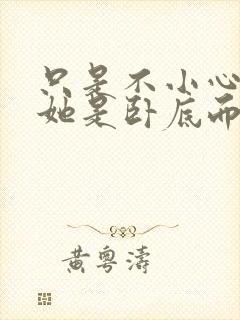 只是不小心
她是卧底而
黄粤涛